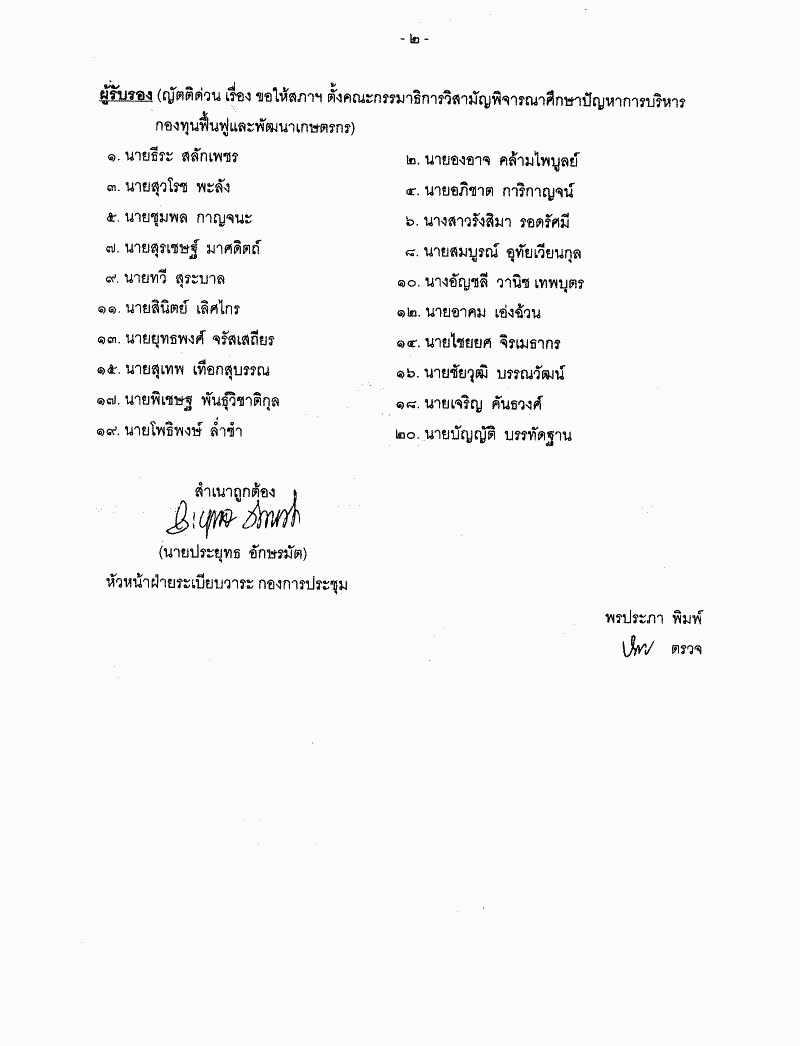 - ๒ -
ผู้รับรอง (ญัตติด่วน เรื่อง ขอให้สภาฯ ตั้งคณะกรรมาธิการวิสามัญพิจารณาศึกษาปัญหาการบริหาร
กองทุนฟื้นฟูและพัฒนาเกษตรกร)
๑. นายธีระ สลักเพชร ๒. นายองอาจ คล้ามไพบูลย์
๓. นายสุวโรช พะลัง ๔. นายอภิชาต การิกาญจน์
๕. นายชุมพล กาญจนะ ๖. นางสาวรังสิมา รอดรัศมี
๗. นายสุรเชษฐ์ มาศดิตถ์ ๘. นายสมบูรณ์ อุทัยเวียนกุล
๙. นายทวี สุระบาล ๑๐. นางอัญชลี วานิช เทพบุตร
๑๑. นายสินิตย์ เลิศไกร ๑๒. นายอาคม เอ่งฉ้วน
๑๓. นายยุทธพงศ์ จรัสเสถียร ๑๔. นายไชยยศ จิรเมธากร
๑๕. นายสุเทพ เทือกสุบรรณ ๑๖. นายชัยวุฒิ บรรณวัฒน์
๑๗. นายพิเชษฐ พันธุ์วิชาติกุล ๑๘. นายเจริญ คันธวงศ์
๑๙. นายโพธิพงษ์ ล่ำซำ ๒๐. นายบัญญัติ บรรทัดฐาน
สำเนาถูกต้อง
(นายประยุทธ อักษรมัต)
หัวหน้าฝ่ายระเบียบวาระ กองการประชุม
พรประภา พิมพ์
ตรวจ